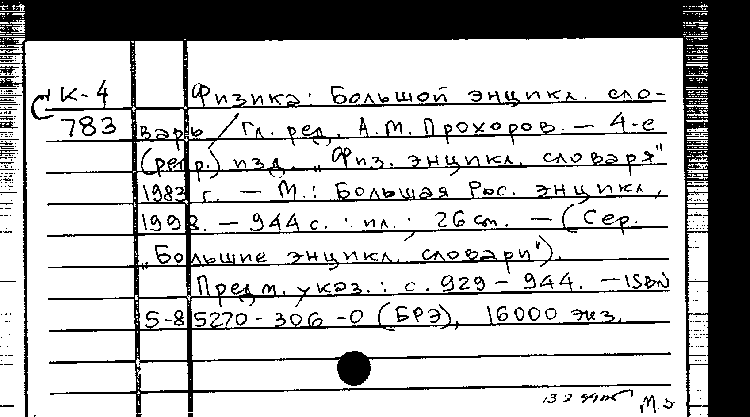 К-4 Физика: Большой энцикл. сло-
С 783 варь / Гл. ред. А.М. Прохоров. — 4-е
(репр.) изд. „Физ. энцикл. словаря"
1983 г. — М.: Большая Рос. энцикл.,
1998. — 944 с. : ил.; 26 см. — (Сер.
„Большие энцикл. словари").
Предм. указ.: с. 929 – 944. — ISBN
5-85270-306-0 (БРЭ), 16000 экз.